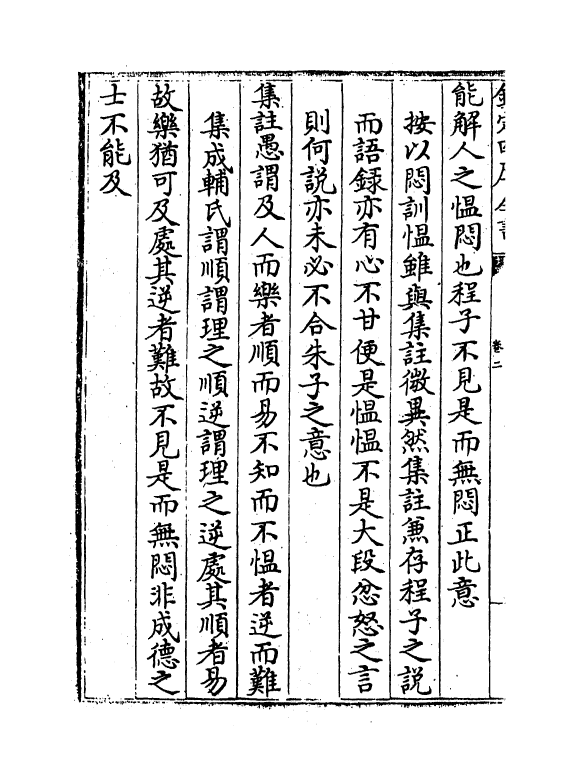 欽定四庫全書
卷二
能解人之愠悶也程子不見是而無悶正此意
按以悶訓愠雖與集註微異然集註兼存程子之說
而語録亦有心不甘便是愠愠不是大段忿怒之言
則何説亦未必不合朱子之意也
集註愚謂及人而樂者順而易不知而不愠者逆而難
集成輔氏謂順謂理之順逆謂理之逆處其順者易
故樂猶可及處其逆者難故不見是而無悶非成德之
士不能及